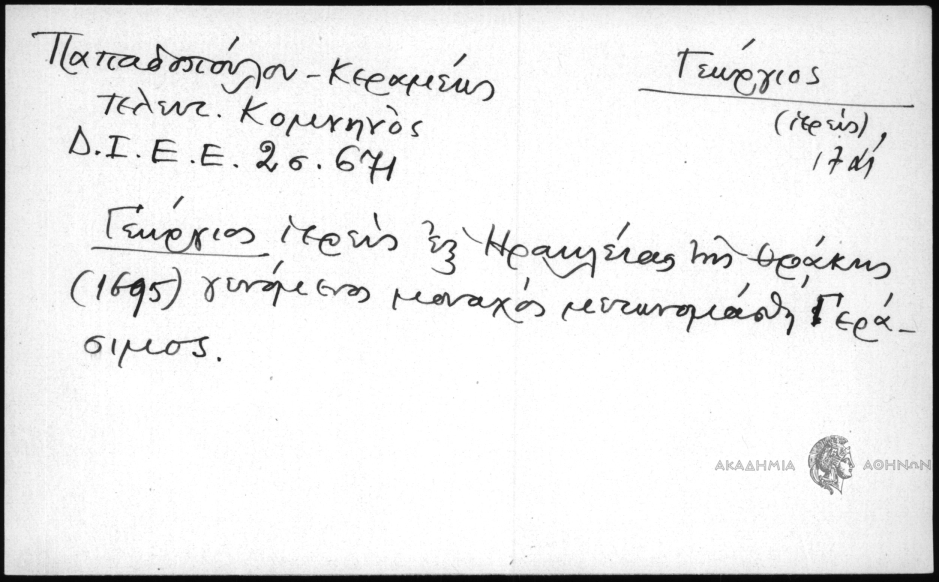 Παπαδοπούλου-Κεραμέως
τελευτ. Κομνηνὸς
Δ.Ι.Ε.Ε. 2 σ. 671
Γεώργιος
(ἱερεὺς),
17
Γεώργιος ἱερεὺς ἐξ Ἡρακλείας τῆς Θράκης
(1695) γενόμενος μοναχός μετωνομάσθη Γερά-
σιμος.
ΑΚΑΔΗΜΙΑ ΑΘΗΝΩΝ